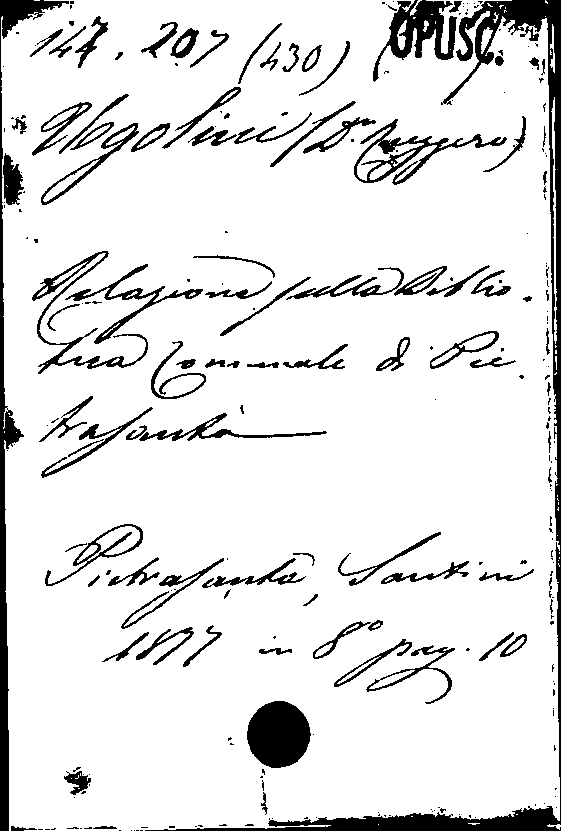 147.207 (430) OPUSC.
Ugolini (Dr. Ruggero)
Relazione sulla Biblio-
teca Comunale di Pie-
trasanta
Pietrasanta, Santini
1877 in 8° pag. 10